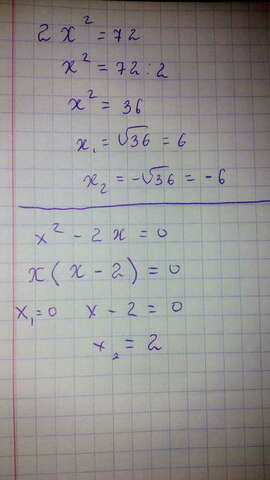 2x² = 72
x² = 72 : 2
x² = 36
x₁ = √36 = 6
x₂ = -√36 = -6
x² - 2x = 0
x(x - 2) = 0
x₁ = 0 x - 2 = 0
x₂ = 2